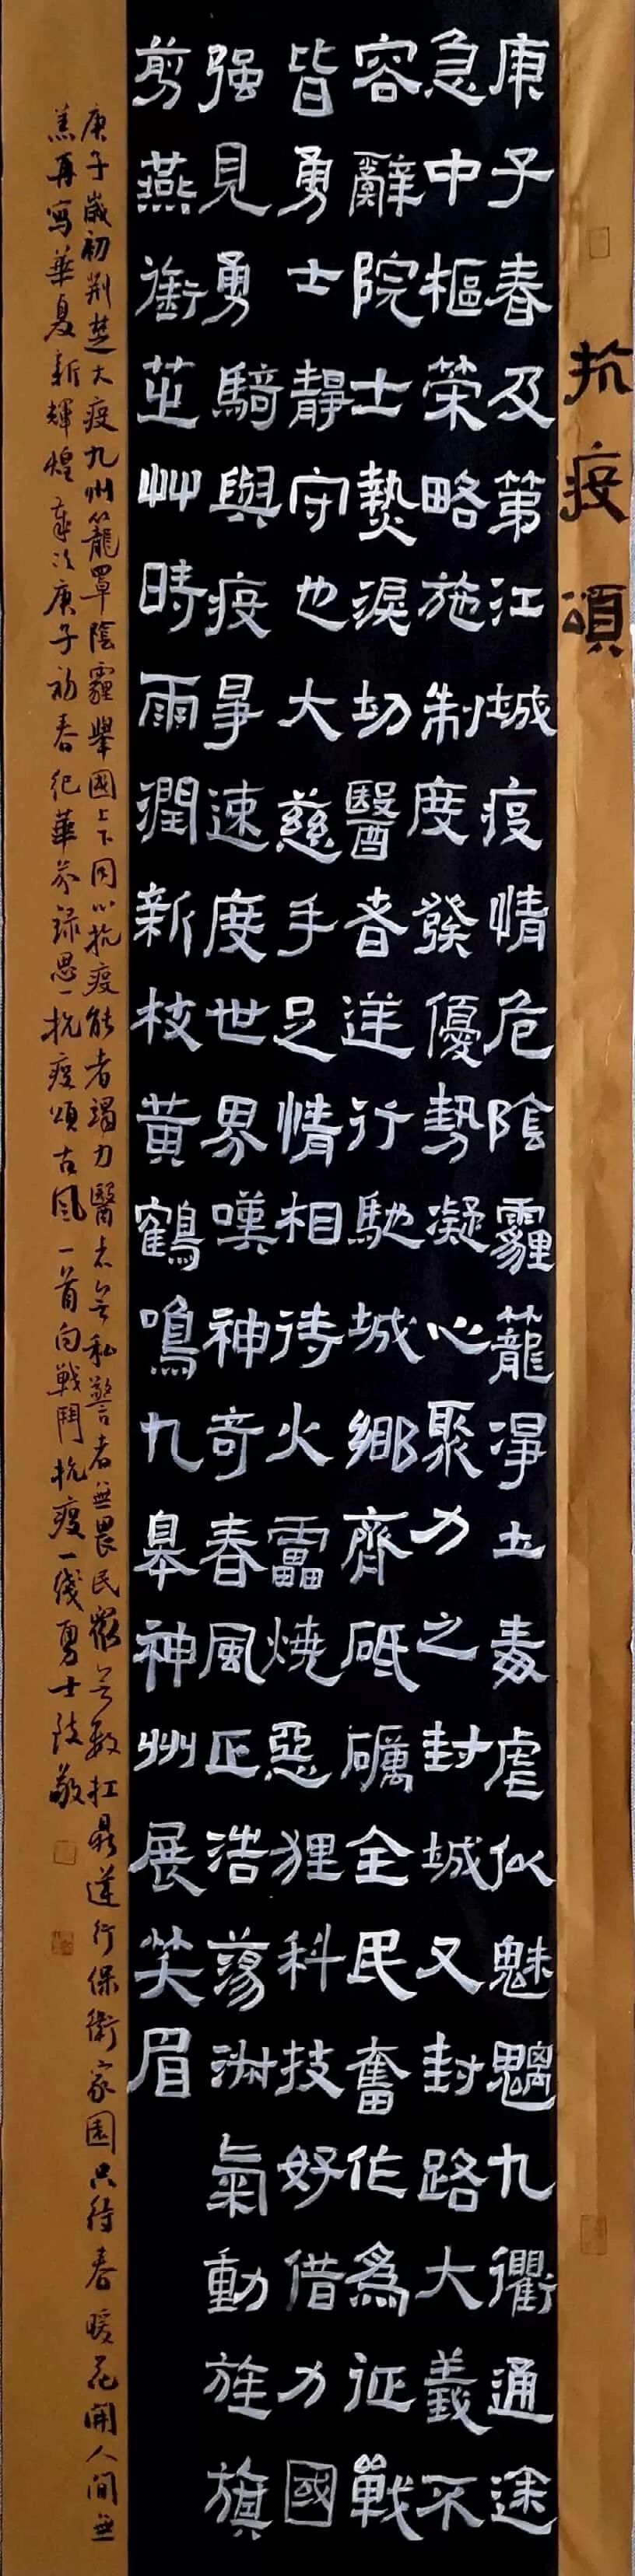 抗疫頌
庚子春及第江城疫情危陰霾籠淨土毒虐似魅魑九衢通途
急中樞榮略施制度發優勢凝心聚力之封城又封路大義不
容辭院士熱淚切醫者逆行馳城鄉齊砥礪全民奮作為征戰
皆勇士靜守也大慈手足情相待火雷燒惡狸科技好借力國
强見勇騎與疫爭速度世界嘆神奇春風正浩蕩洲氣動旌旗
剪燕銜芷艸時雨潤新枝黃鶴鳴九皋神州展笑眉
庚子歲初荆楚大疫九州籠罩陰霾舉國上下同心抗疫能者竭力醫者無私警者無畏民眾無數扛鼎逆行保衛家園只待春暖花開人間無
恙再寫華夏新輝煌 庚子初春紀華 錄思一抗疫頌古風一首向戰鬥抗疫一綫勇士致敬